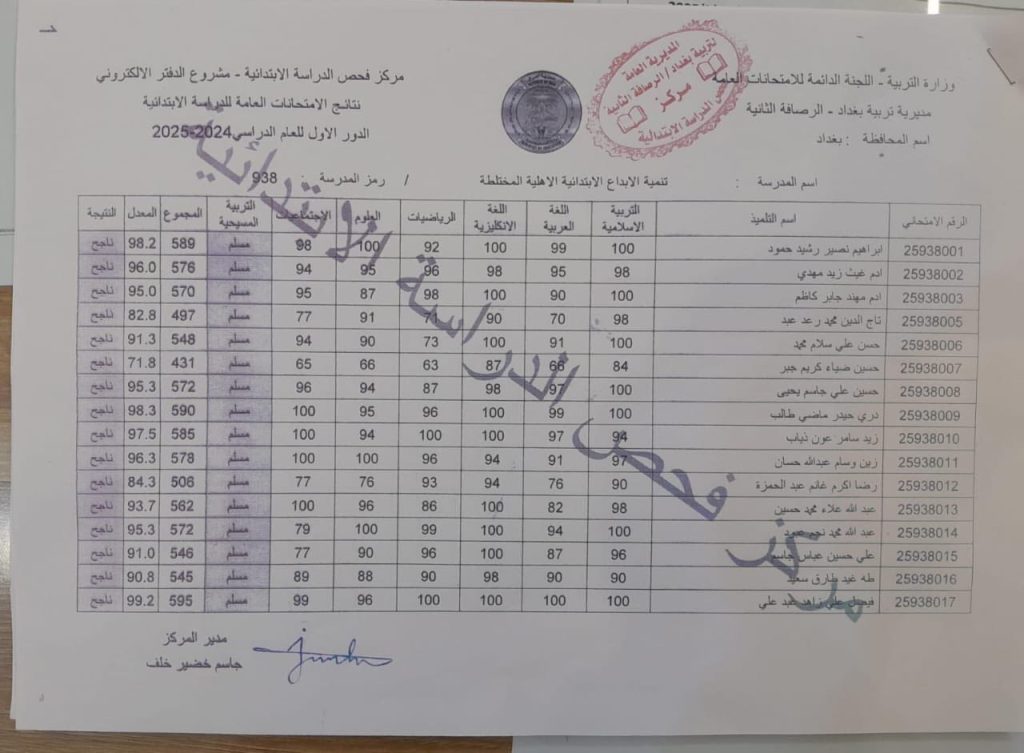 وزارة التربية - اللجنة الدائمة للامتحانات العامة
مديرية تربية بغداد - الرصافة الثانية
اسم المحافظة : بغداد
المديرية العامة
لتربية بغداد / الرصافة الثانية
مركز
فحص الدراسة الابتدائية
مركز فحص الدراسة الابتدائية - مشروع الدفتر الالكتروني
نتائج الامتحانات العامة للدراسة الابتدائية
الدور الاول للعام الدراسي 2024-2025
اسم المدرسة : تنمية الابداع الابتدائية الاهلية المختلطة / رمز المدرسة : 938
الرقم الامتحاني اسم التلميذ التربية الاسلامية اللغة العربية اللغة الانكليزية الرياضيات العلوم الاجتماعيات التربية المسيحية المجموع المعدل النتيجة
25938001 ابراهيم نصير رشيد حمود 100 99 100 92 100 98 مسلم 589 98.2 ناجح
25938002 ادم غيث زيد مهدي 98 95 98 96 95 94 مسلم 576 96.0 ناجح
25938003 ادم مهند جابر كاظم 100 90 100 98 87 95 مسلم 570 95.0 ناجح
25938005 تاج الدين محمد رعد عبد 98 70 90 71 91 77 مسلم 497 82.8 ناجح
25938006 حسن علي سلام محمد 100 91 100 73 90 94 مسلم 548 91.3 ناجح
25938007 حسين ضياء كريم جبر 84 66 87 63 66 65 مسلم 431 71.8 ناجح
25938008 حسين علي جاسم يحيى 100 97 98 87 94 96 مسلم 572 95.3 ناجح
25938009 دري حيدر ماضي طالب 100 99 100 96 95 100 مسلم 590 98.3 ناجح
25938010 زيد سامر عون ذياب 94 97 100 100 94 100 مسلم 585 97.5 ناجح
25938011 زين وسام عبدالله حسان 97 91 94 96 100 100 مسلم 578 96.3 ناجح
25938012 رضا اكرم غانم عبد الحمزة 90 76 94 93 76 77 مسلم 506 84.3 ناجح
25938013 عبد الله علاء محمد حسين 98 82 100 86 96 100 مسلم 562 93.7 ناجح
25938014 عبد الله محمد نجم عبود 100 94 100 99 100 79 مسلم 572 95.3 ناجح
25938015 علي حسين عباس جاسم 96 87 100 96 90 77 مسلم 546 91.0 ناجح
25938016 طه غيد طارق سعيد 90 90 98 90 88 89 مسلم 545 90.8 ناجح
25938017 فيصل علي زاهد عبد علي 100 100 100 100 96 99 مسلم 595 99.2 ناجح
مركز فحص الدراسة الابتدائية
مدير المركز
جاسم خضير خلف